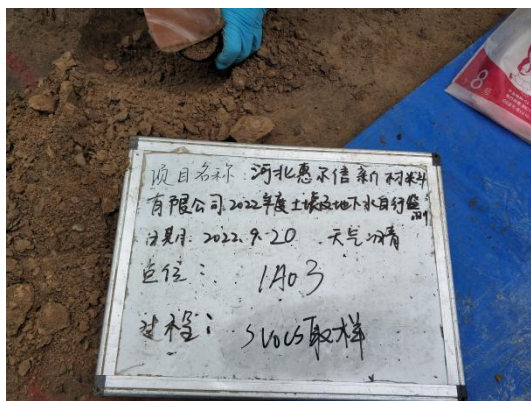 项目名称: 河北惠尔信新材料
有限公司2022年度土壤及地下水自行监测
日期: 2022.9.20 天气: 晴
点位: 1A03
过程: SVOCS取样
8